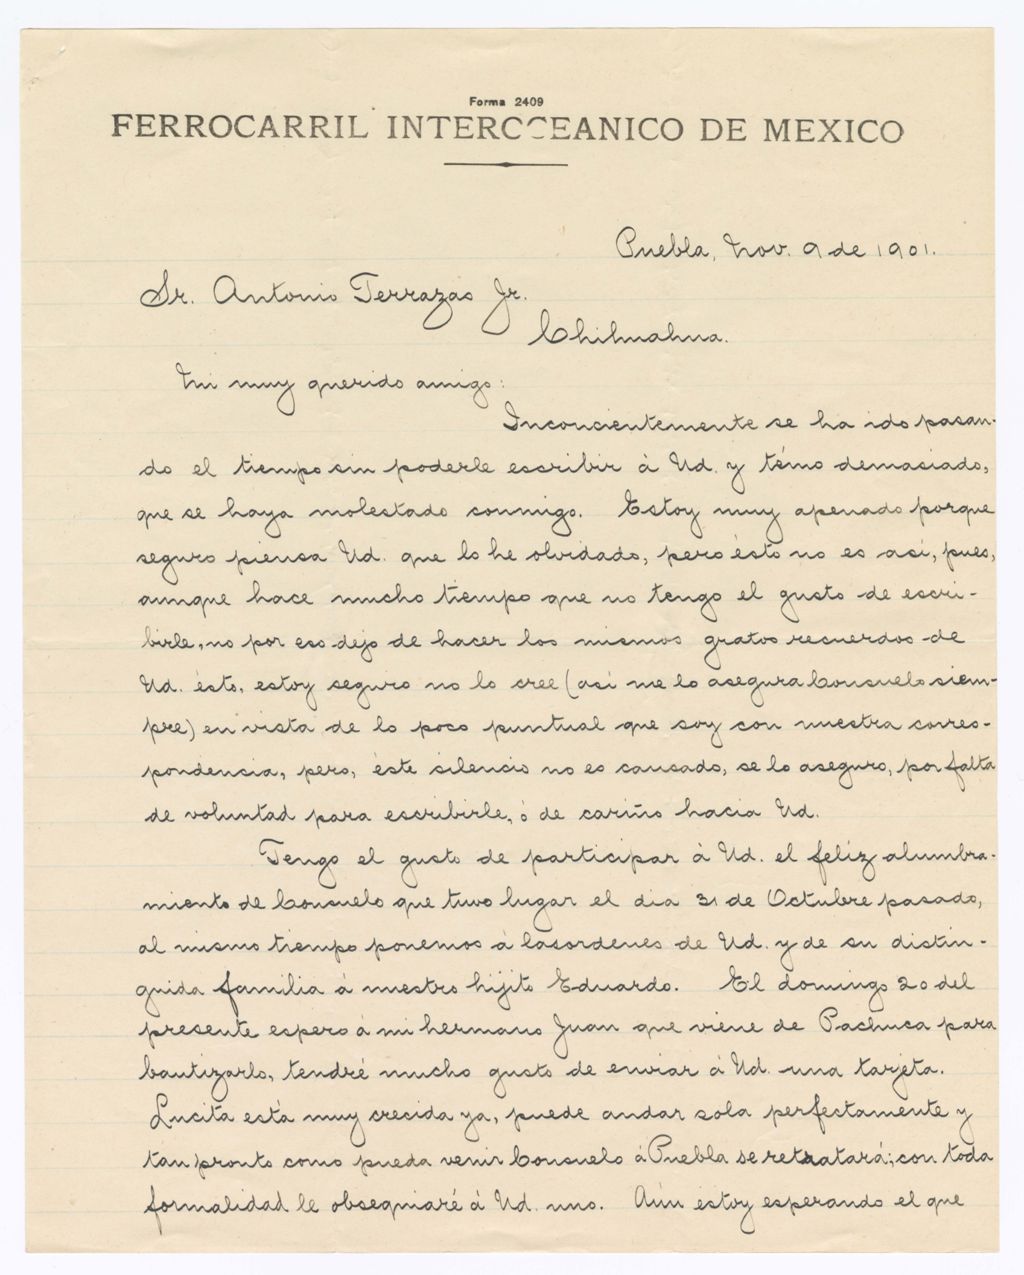 Forma 2409
FERROCARRIL INTEROCEANICO DE MEXICO
Puebla, Nov. 9 de 1901.
Sr. Antonio Terrazas Jr.
Chihuahua.
Mi muy querido amigo:
Inconcientemente se ha ido pasan-
do el tiempo sin poderle escribir á Ud. y témo demasiado,
que se haya molestado conmigo. Estoy muy apenado porque
seguro piensa Ud. que lo he olvidado, pero ésto no es así, pues,
aunque hace mucho tiempo que no tengo el gusto de escri-
birle, no por eso dejo de hacer los mismos gratos recuerdos de
Ud. ésto, estoy seguro no lo cree (así me lo asegura Consuelo siem-
pre) en vista de lo poco puntual que soy con nuestra corres-
pondencia, pero, éste silencio no es causado, se lo aseguro, por falta
de voluntad para escribirle, ó de cariño hacia Ud.
Tengo el gusto de participar á Ud. el felíz alumbra-
miento de Consuelo que tuvo lugar el dia 31 de Octubre pasado,
al mismo tiempo ponemos á las ordenes de Ud. y de su distin-
guida familia á nuestro hijito Eduardo. El domingo 20 del
presente espero á mi hermano Juan que viene de Pachuca para
bautizarlo, tendré mucho gusto de enviar á Ud. una tarjeta.
Lucita está muy crecida ya, puede andar sola perfectamente y
tan pronto como pueda venir Consuelo á Puebla se retratará; con toda
formalidad le obsequiaré á Ud. uno. Aún estoy esperando el que